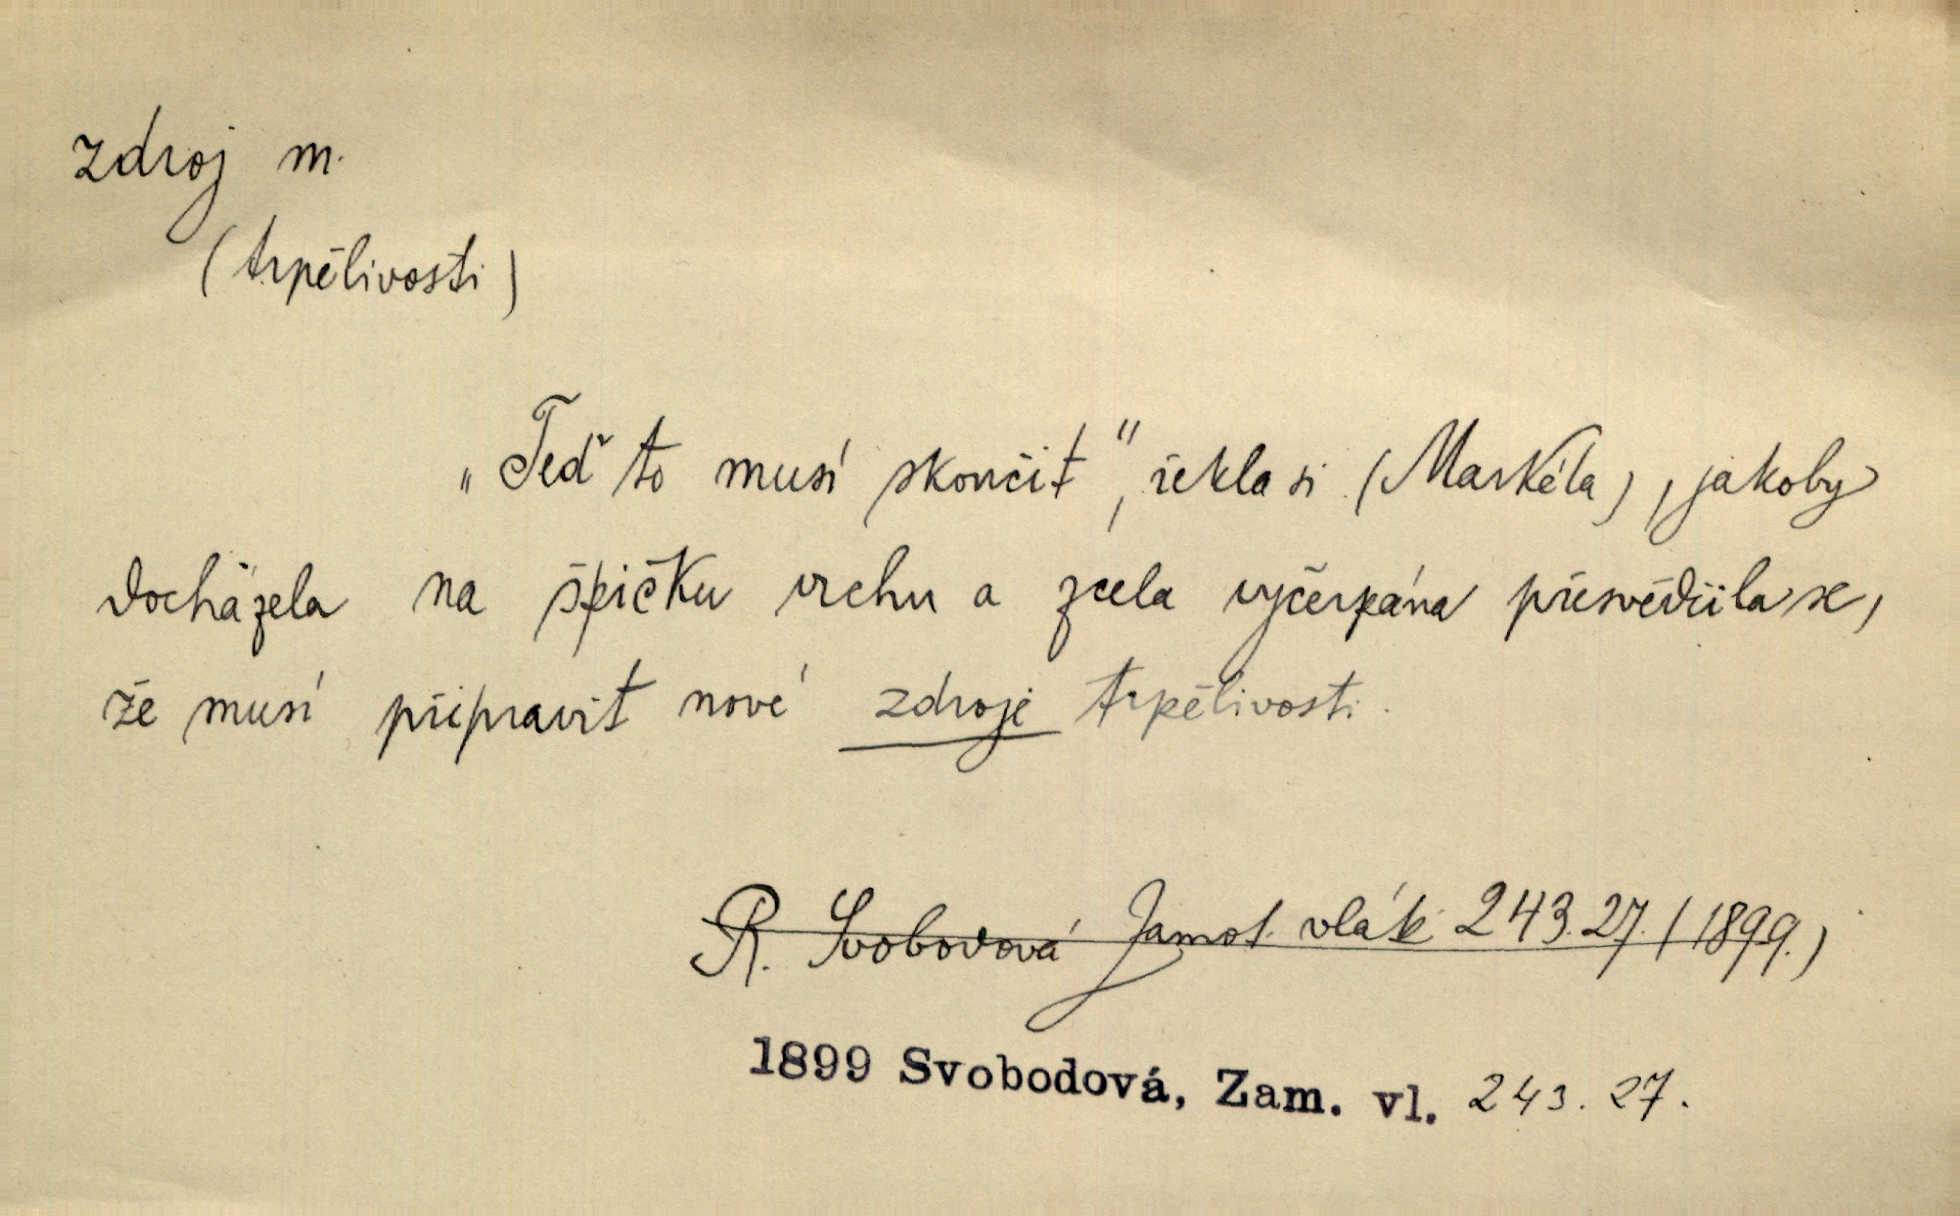 zdroj m.
(trpělivosti)
„Teď to musí skončit", řekla si (Markéta), jakoby
docházela na špičku vrchu a zcela vyčerpána přesvědčila se,
že musí připravit nové zdroje trpělivosti.
R. Svobodová Zamot. vlák. 243.27. (1899.)
1899 Svobodová, Zam. vl. 243. 27.